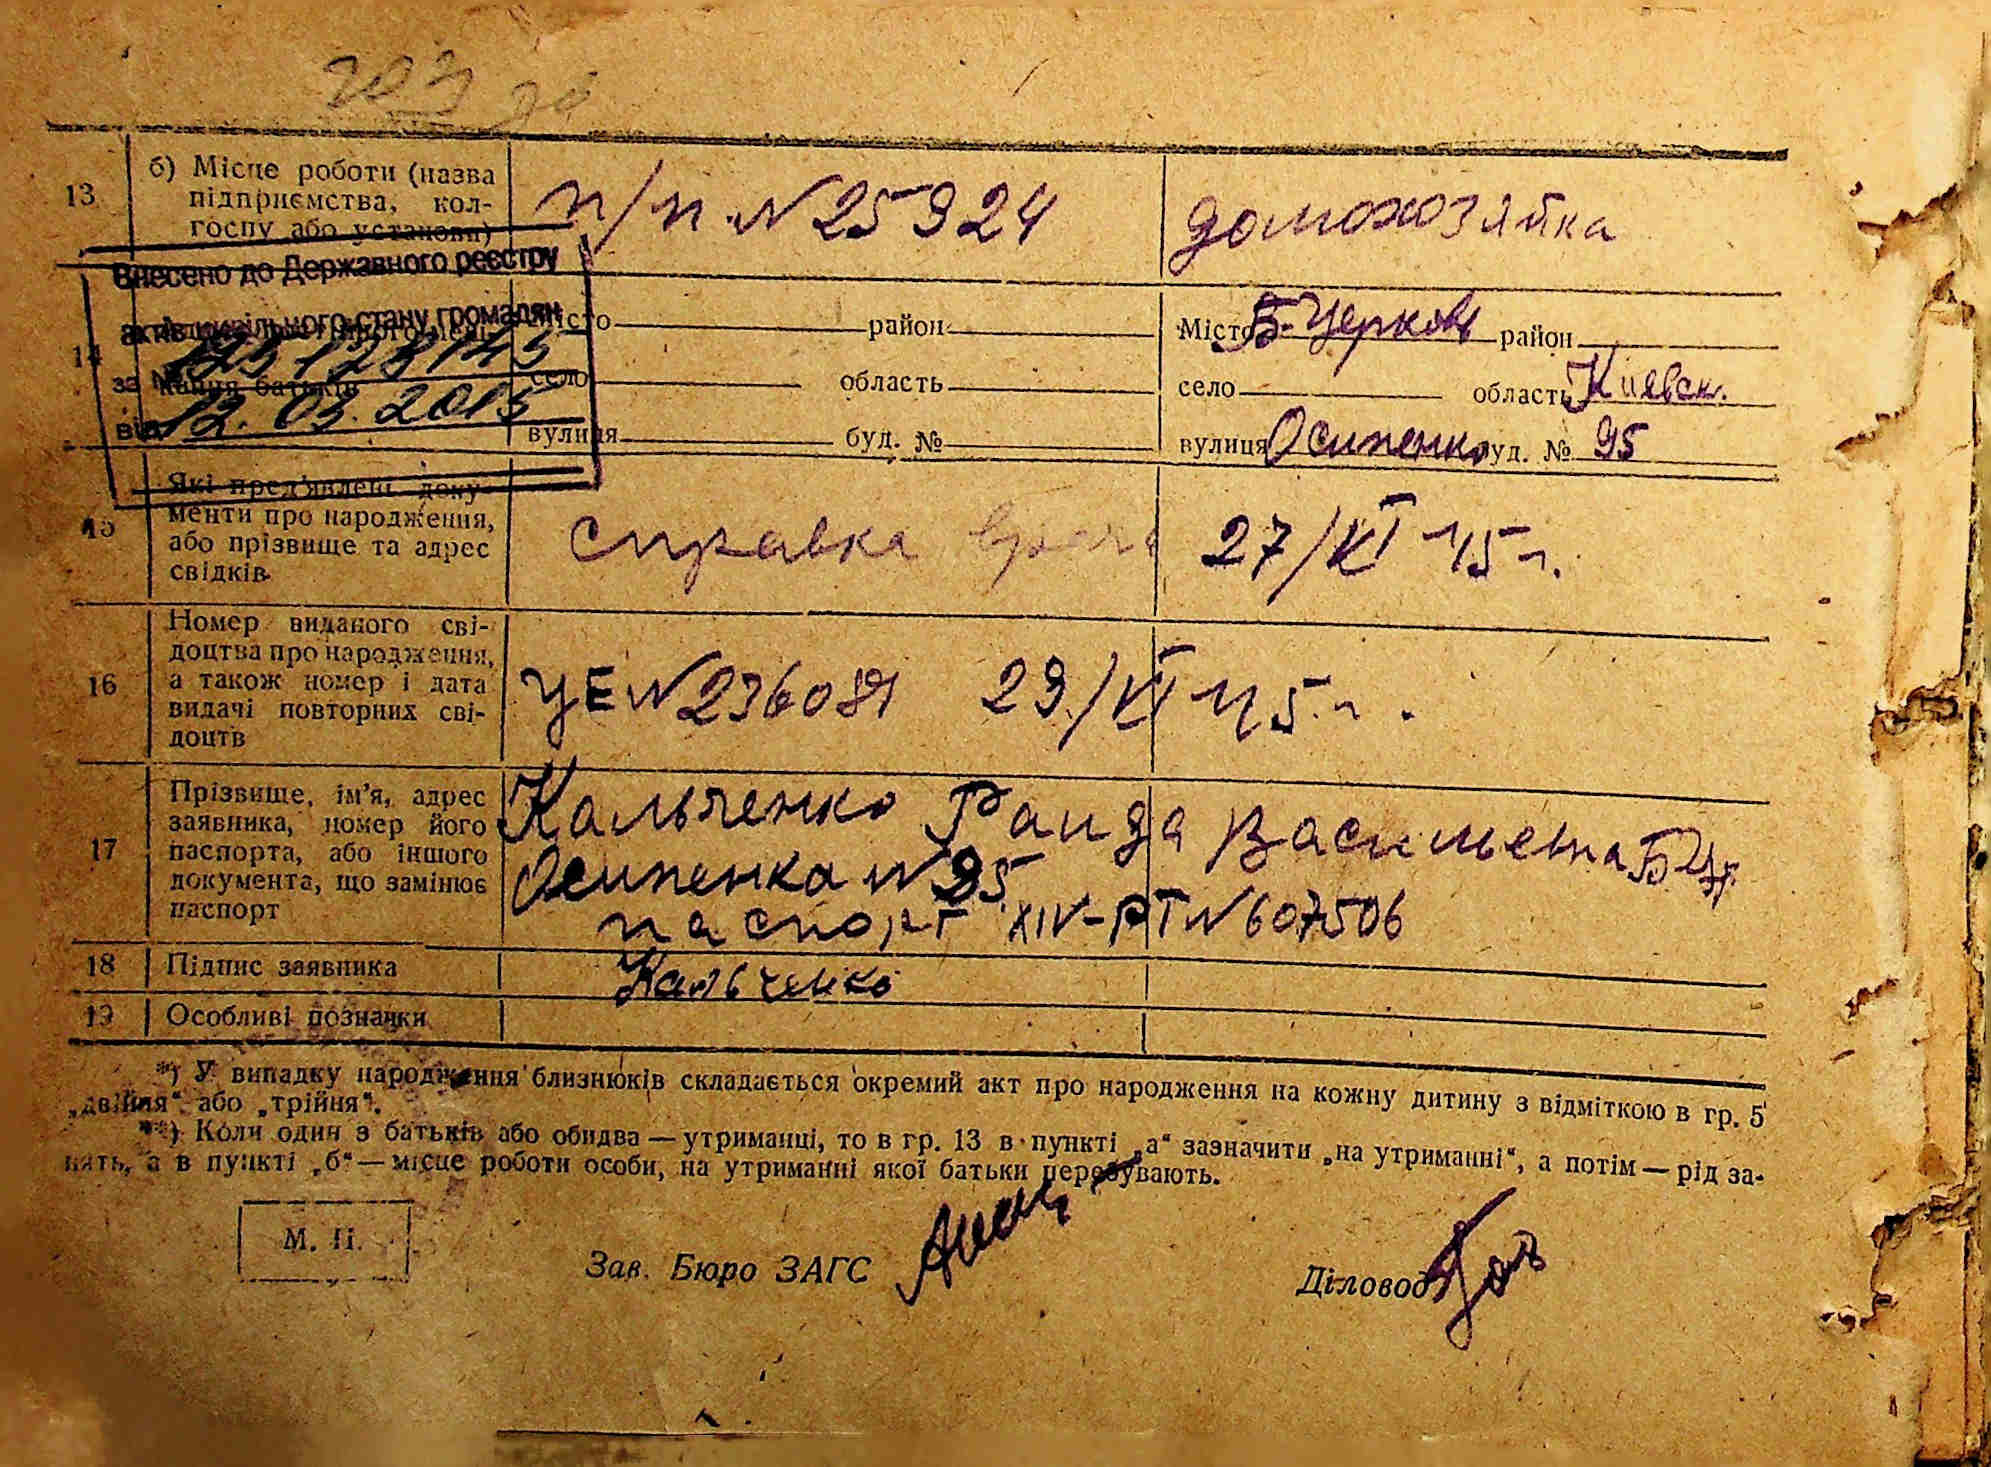 13
б) Місце роботи (назва
підприємства, кол-
госпу або установи)
п/п. N 25924
домохозяйка
Внесено до Державного реєстру
актів цивільного стану громадян
за №
від 12.03.2015
14
місто район
село область
вулиця буд. №
Місто Б-Церковь район
село область Киевск.
вулиця Осипенко буд. № 95
15
Які пред'явлені доку-
менти про народження,
або прізвище та адрес
свідків.
справка врача 27/XI 45 г.
16
Номер виданого сві-
доцтва про народження,
а також номер і дата
видачі повторних сві-
доцтв
УЕ N 236081 29/XI 45 г.
17
Прізвище, ім'я, адрес
заявника, номер його
паспорта, або іншого
документа, що замінює
паспорт
Кальченко Раида Васильевна Б Цер.
Осипенка N 95
паспорт XIV-РТ N 607506
18 Підпис заявника Кальченко
19 Особливі позначки
*) У випадку народження близнюків складається окремий акт про народження на кожну дитину з відміткою в гр. 5
„двійня“ або „трійня“.
**) Коли один з батьків або обидва — утриманці, то в гр. 13 в пункті „а“ зазначити „на утриманні“, а потім — рід за-
нять, а в пункті „б“ — місце роботи особи, на утриманні якої батьки перебувають.
М. П.
Зав. Бюро ЗАГС
Діловод